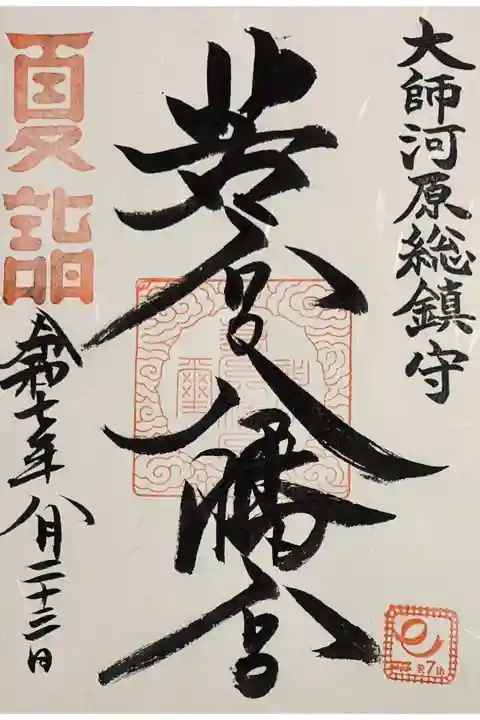 大師河原総鎮守
若宮八幡宮
夏詣
令和七年八月二十三日
R7th